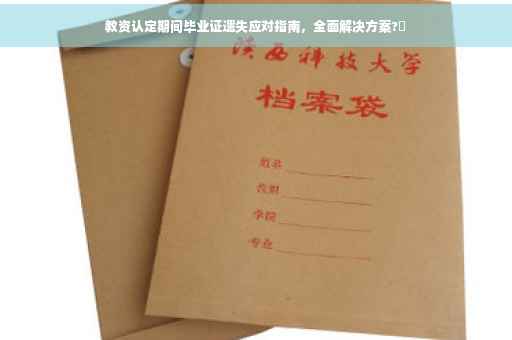 教资认定期间毕业证遗失应对指南，全面解决方案?
陕西科技大学
档案袋
姓名
学院
专业